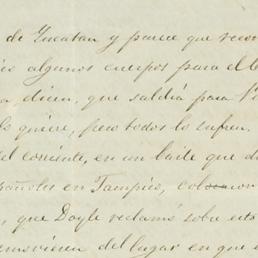 de Yucatan y parece que recon
algunos cuerpos para el
dicen, que saldrá para
quiere, pero todos lo sufren.
del corriente, en un baile que d
españoles en Tampico,
, que Doyle reclamó sobre esto
removieren del lugar en que